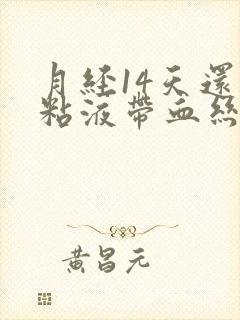 月経14天還
粘液帶血絲
黃昌元